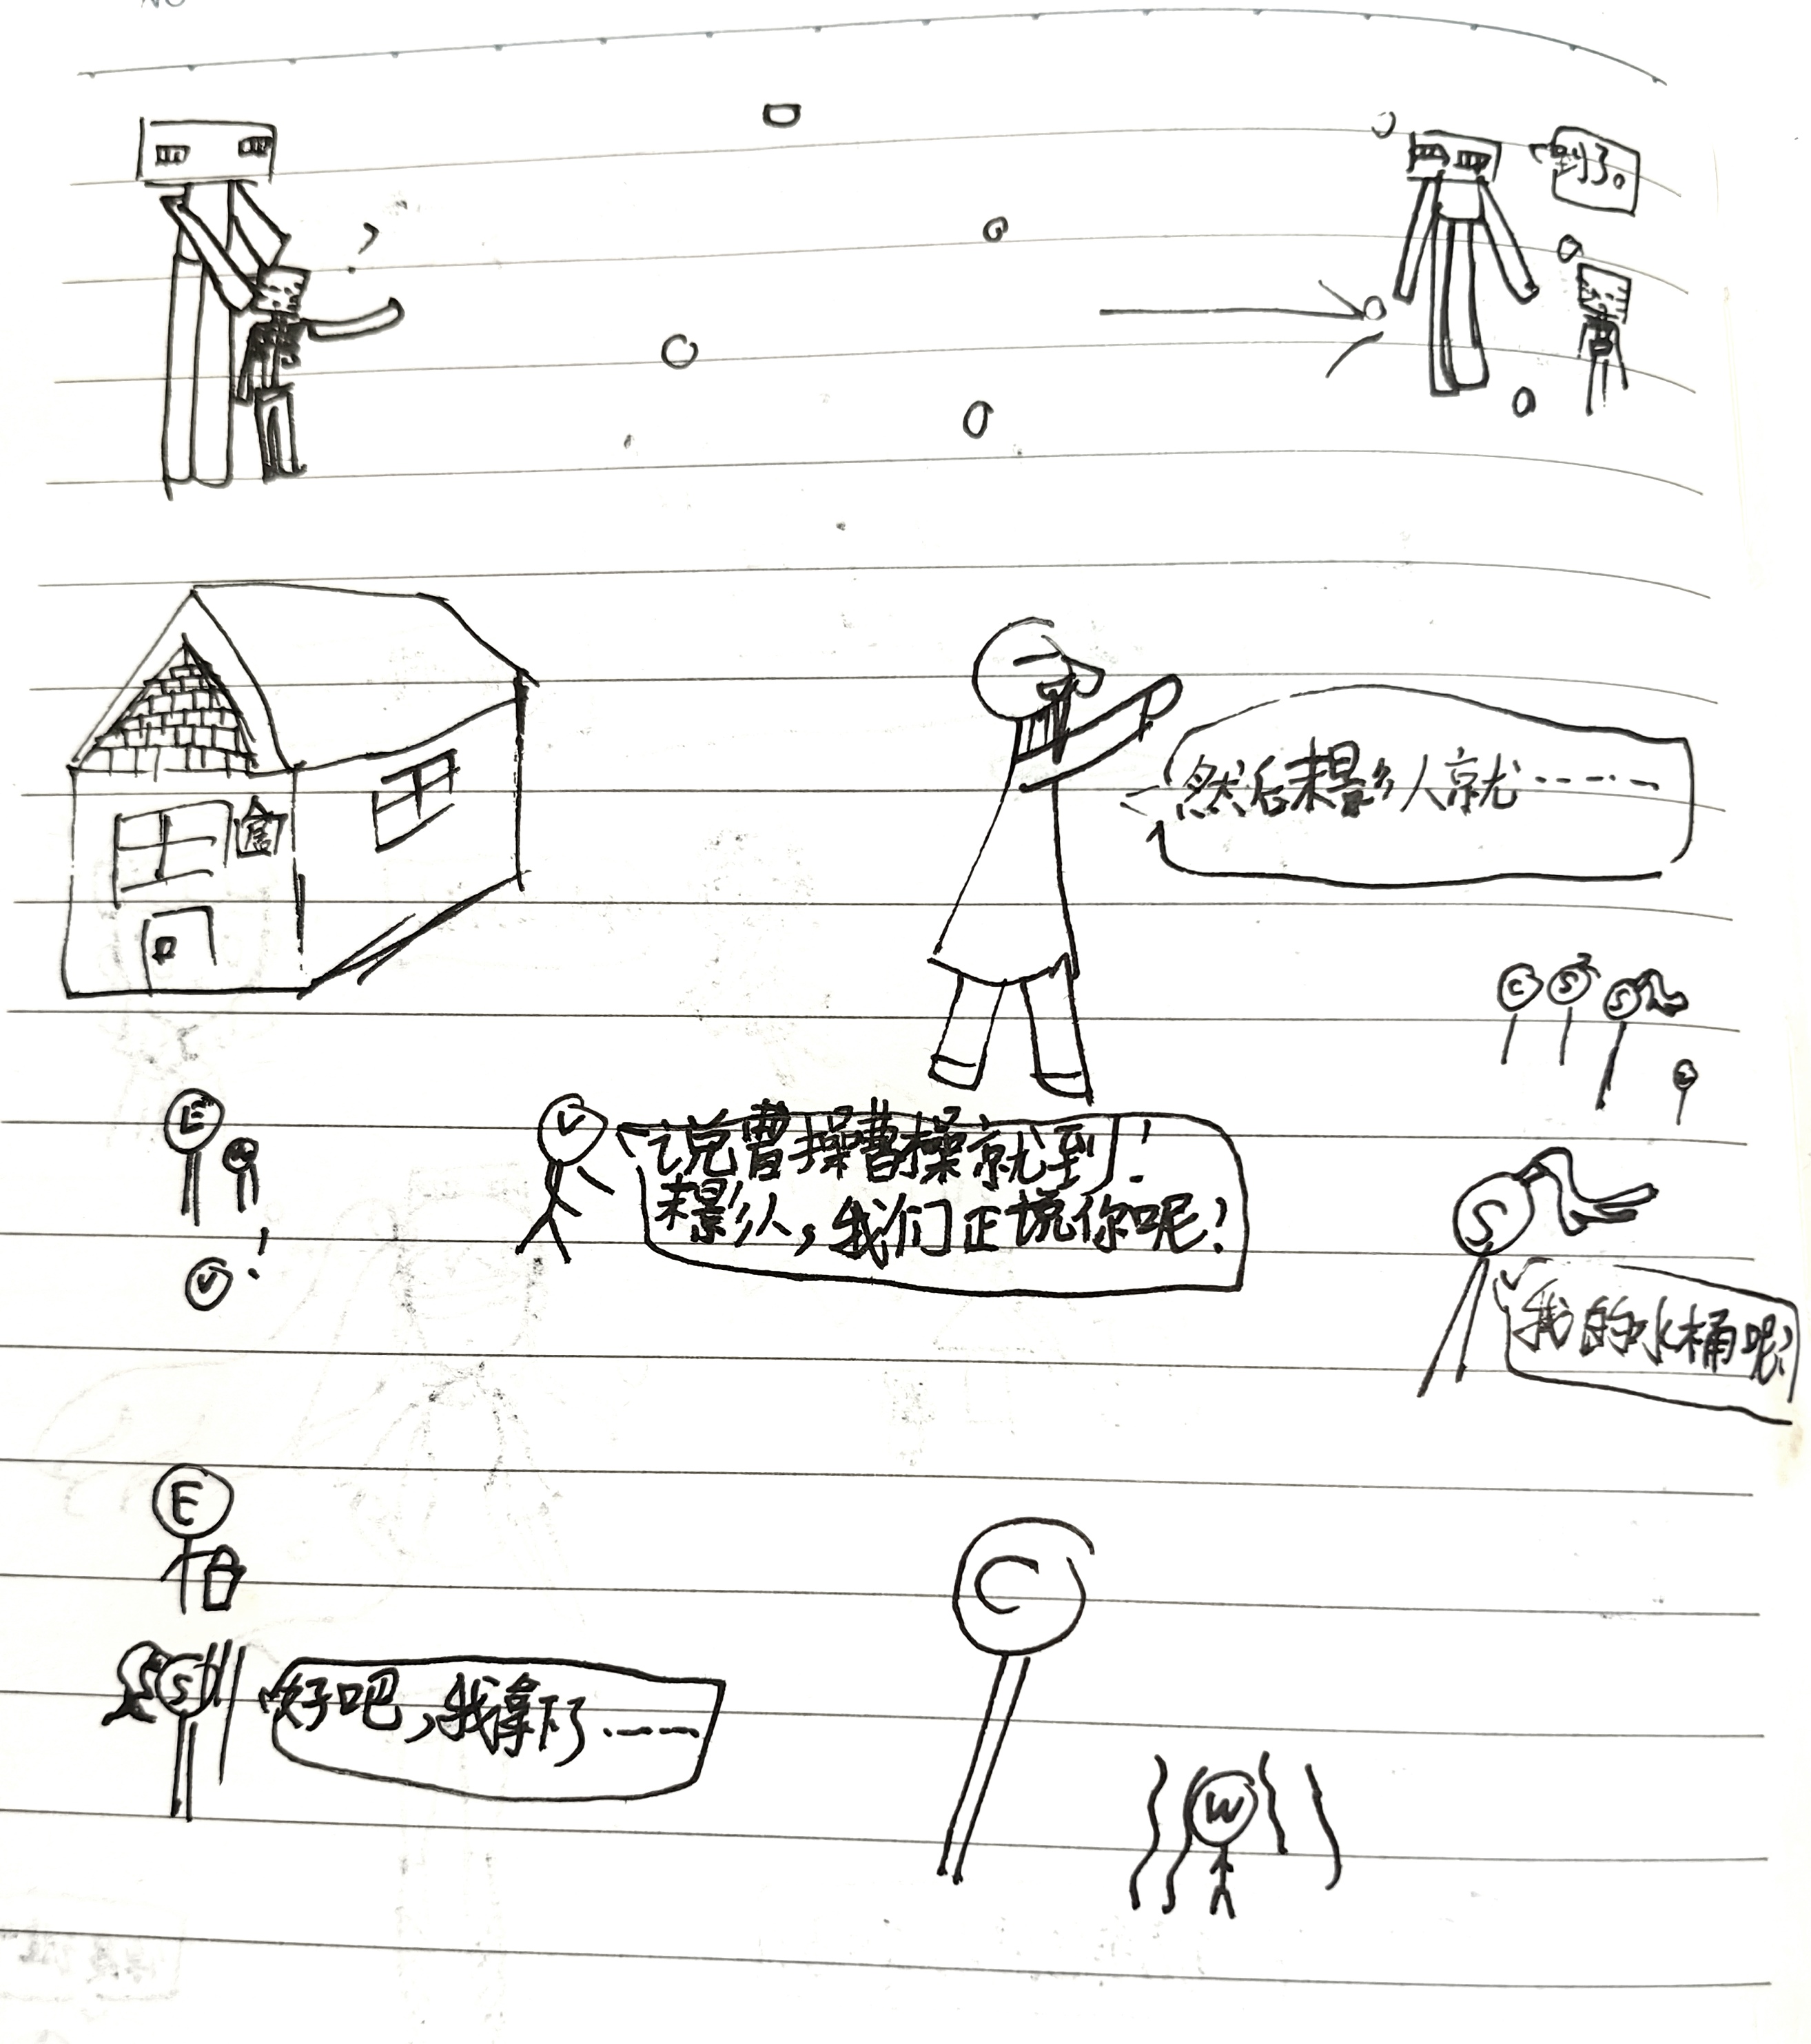 NO
?
到了。
然后末影人就……
C
S
S
E
V
说曹操曹操就到!
末影人,我们正说你呢!
V!
S
我的水桶呢?
E
C
S
好吧,我拿下了……
W